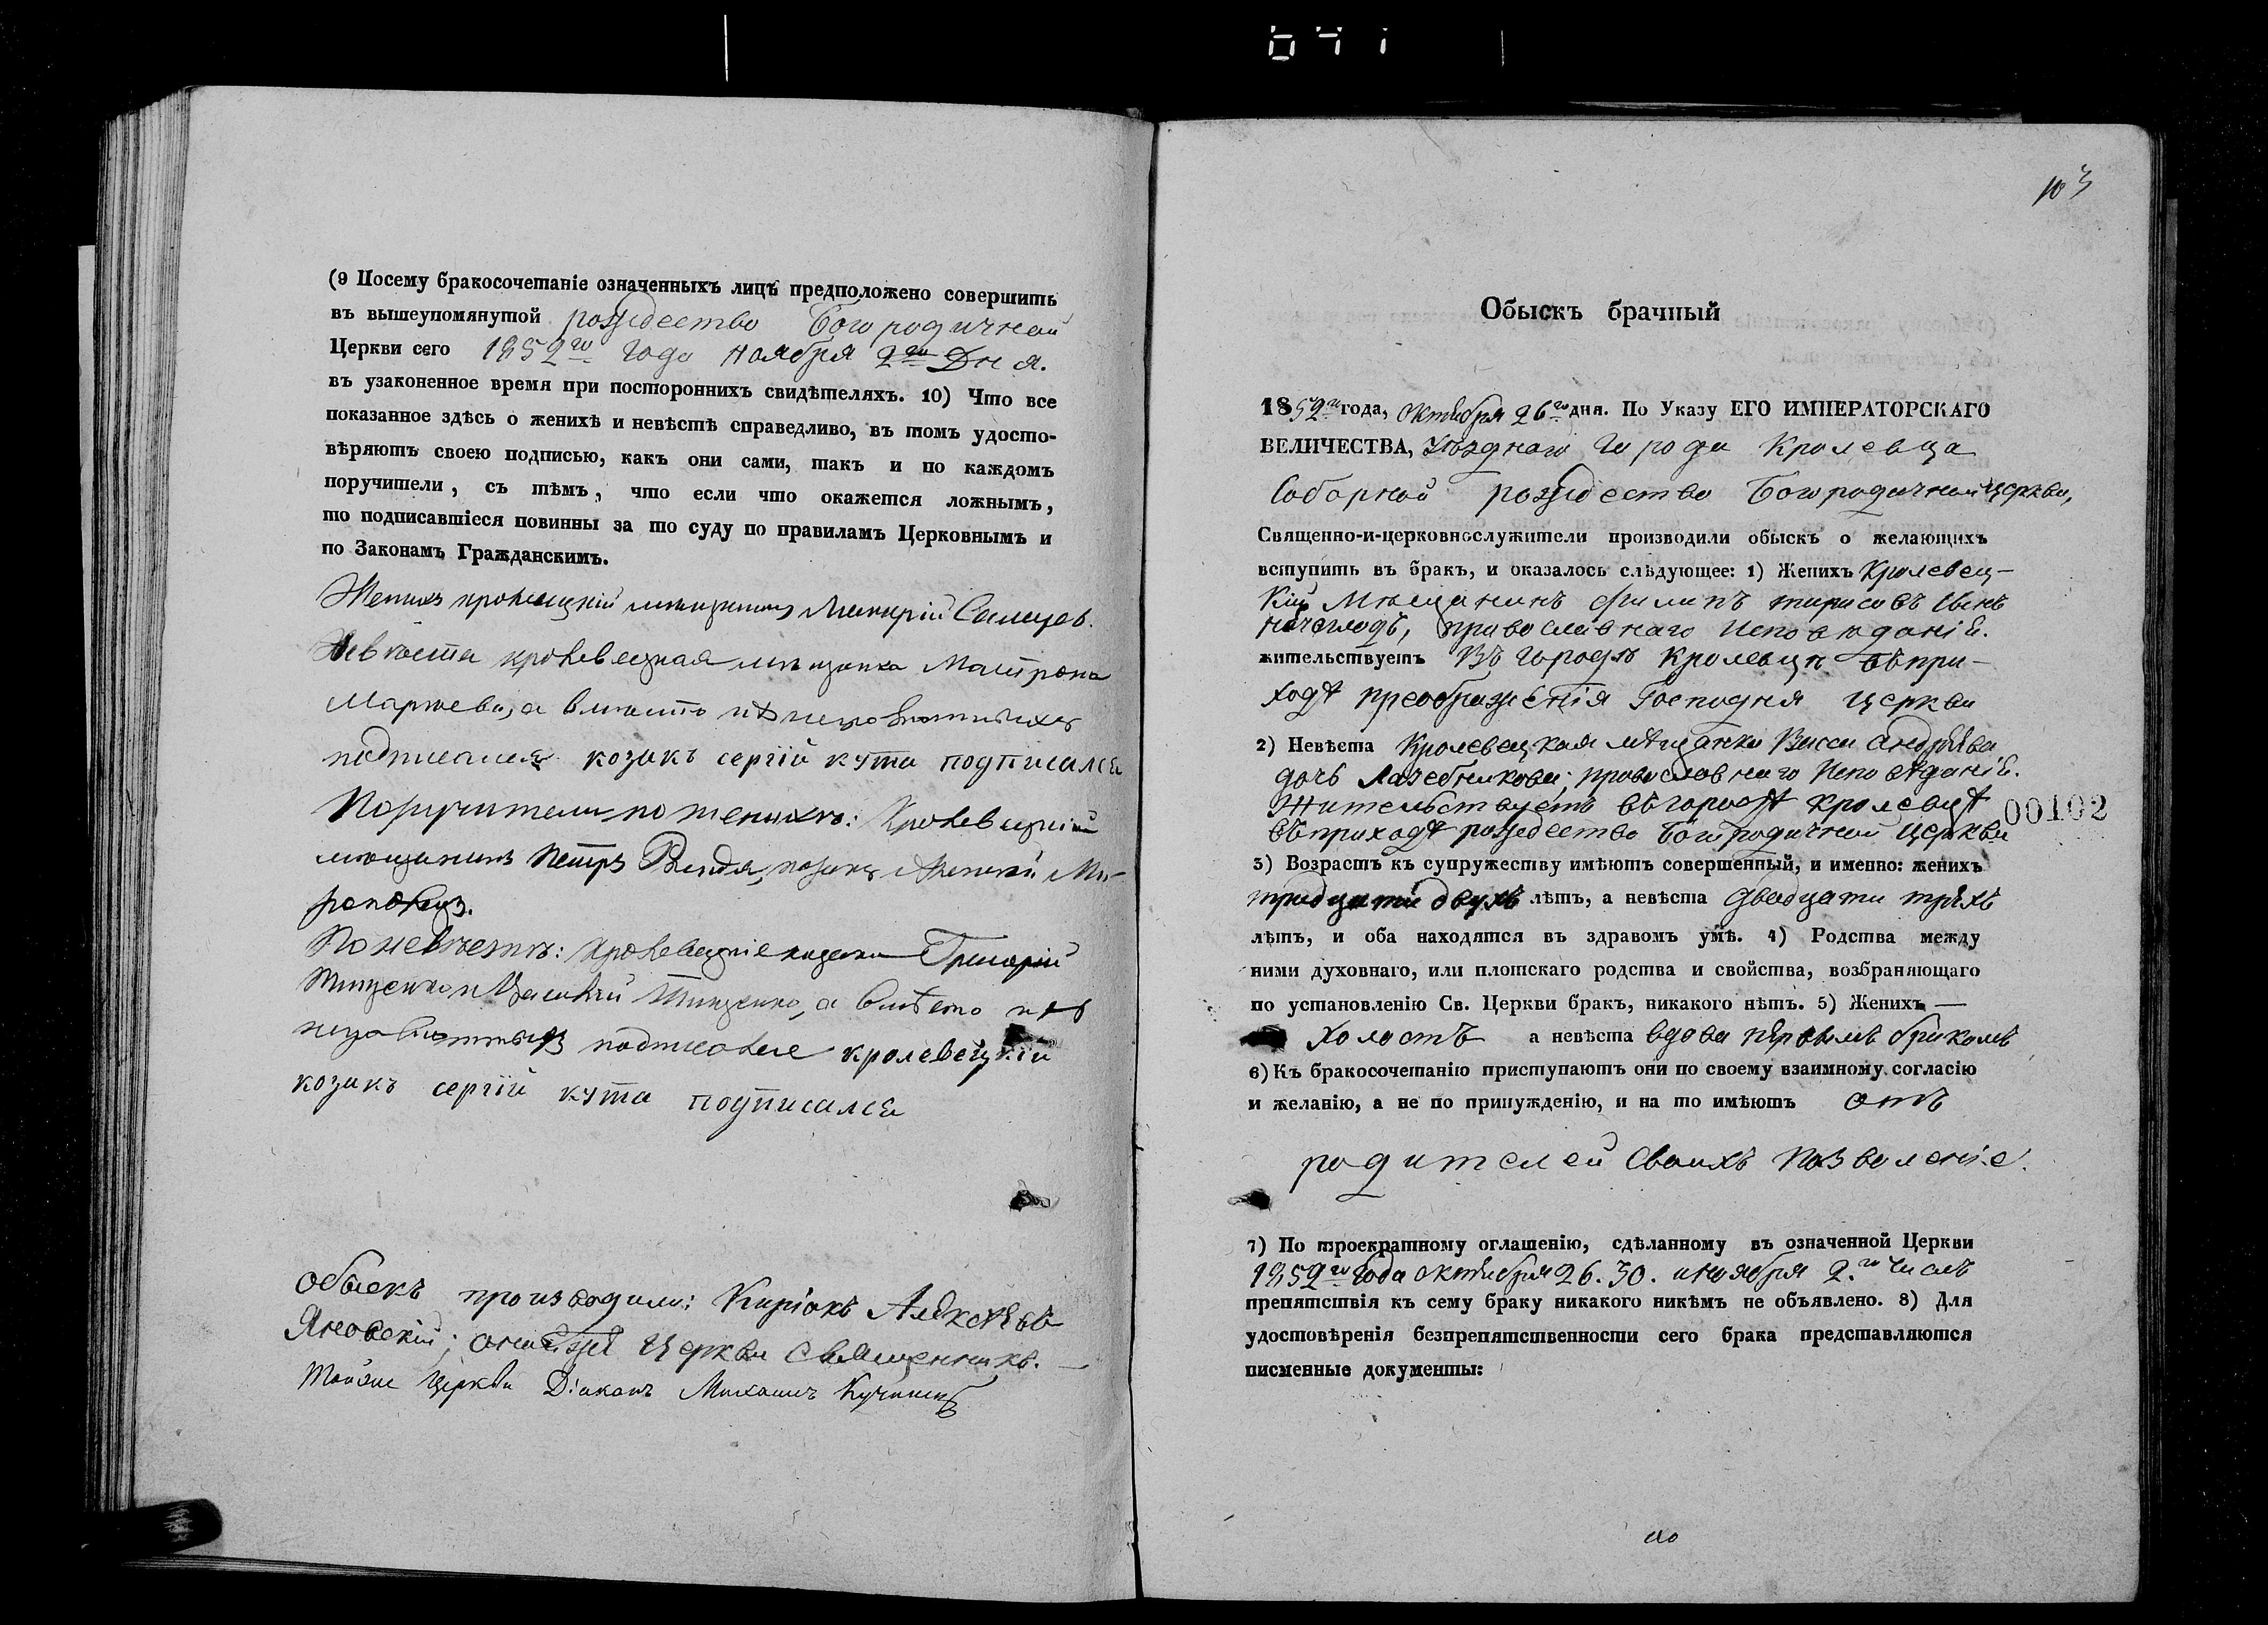 (9 Посему бракосочетаніе означенныхъ лицъ предположено совершить
въ вышеупомянутой рождество Богородичной
Церкви сего 1852го года ноября 2го Дня.
въ узаконенное время при постороннихъ свидѣтеляхъ. 10) Что все
показанное здѣсь о женихѣ и невѣстѣ справедливо, въ томъ удосто-
вѣряютъ своею подписью, какъ они сами, такъ и по каждомъ
поручители, съ тѣмъ, что если что окажется ложнымъ,
то подписавшіеся повинны за то суду по правиламъ Церковнымъ и
по Законамъ Гражданскимъ.
Женихъ кролевецкій мѣщанинъ
Невѣста кролевецкая мѣщанка Матрона
а вмѣсто ихъ неграмотныхъ
подписался козакъ сергій кута подписался
Поручители по женихѣ: Кролевецкій
мѣщанинъ Петръ козакъ
По невѣстѣ: Кролевецкіе козаки Григорій
Тищенко и Василій Тищенко, а вмѣсто ихъ
неграмотныхъ подписался кролевецкій
козакъ сергій кута подписался
обыскъ производили: Киріакъ Алексѣевъ
Яновскій; Церкви священникъ.
Тойже Церкви Діаконъ Михаилъ
103
Обыскъ брачный
1852го года, октября 26го дня. По Указу ЕГО ИМПЕРАТОРСКАГО
ВЕЛИЧЕСТВА, Уѣзднаго города Кролевца
Соборной рождество Богородичной церкви,
Священно-и-церковнослужители производили обыскъ о желающихъ
вступить въ бракъ, и оказалось слѣдующее: 1) Женихъ Кролевец-
кій Мѣщанинъ филипъ тарасовъ сынъ
православнаго исповѣданія.
жительствуетъ Въ городѣ Кролевцѣ въ при-
ходѣ преображенія Господня церкви
2) Невѣста Кролевецкая мѣщанка Васса андрѣева
дочь Лазебникова; православнаго исповѣданія.
Жительствуетъ въ городѣ кролевцѣ
въ приходѣ рождество Богородичной церкви
00102
3) Возрастъ къ супружеству имѣютъ совершенный, и именно: женихъ
тридцати двухъ лѣтъ, а невѣста двадцати трехъ
лѣтъ, и оба находятся въ здравомъ умѣ. 4) Родства между
ними духовнаго, или плотскаго родства и свойства, возбраняющаго
по установленію Св. Церкви бракъ, никакого нѣтъ. 5) Женихъ —
холостъ а невѣста вдова первымъ бракомъ
6) Къ бракосочетанію приступаютъ они по своему взаимному согласію
и желанію, а не по принужденію, и на то имѣютъ отъ
родителей своихъ позволеніе.
7) По троекратному оглашенію, сдѣланному въ означенной Церкви
1852го года октября 26. 30. и ноября 2.го числъ
препятствія къ сему браку никакого никѣмъ не объявлено. 8) Для
удостовѣренія безпрепятственности сего брака представляются
писменные документы: